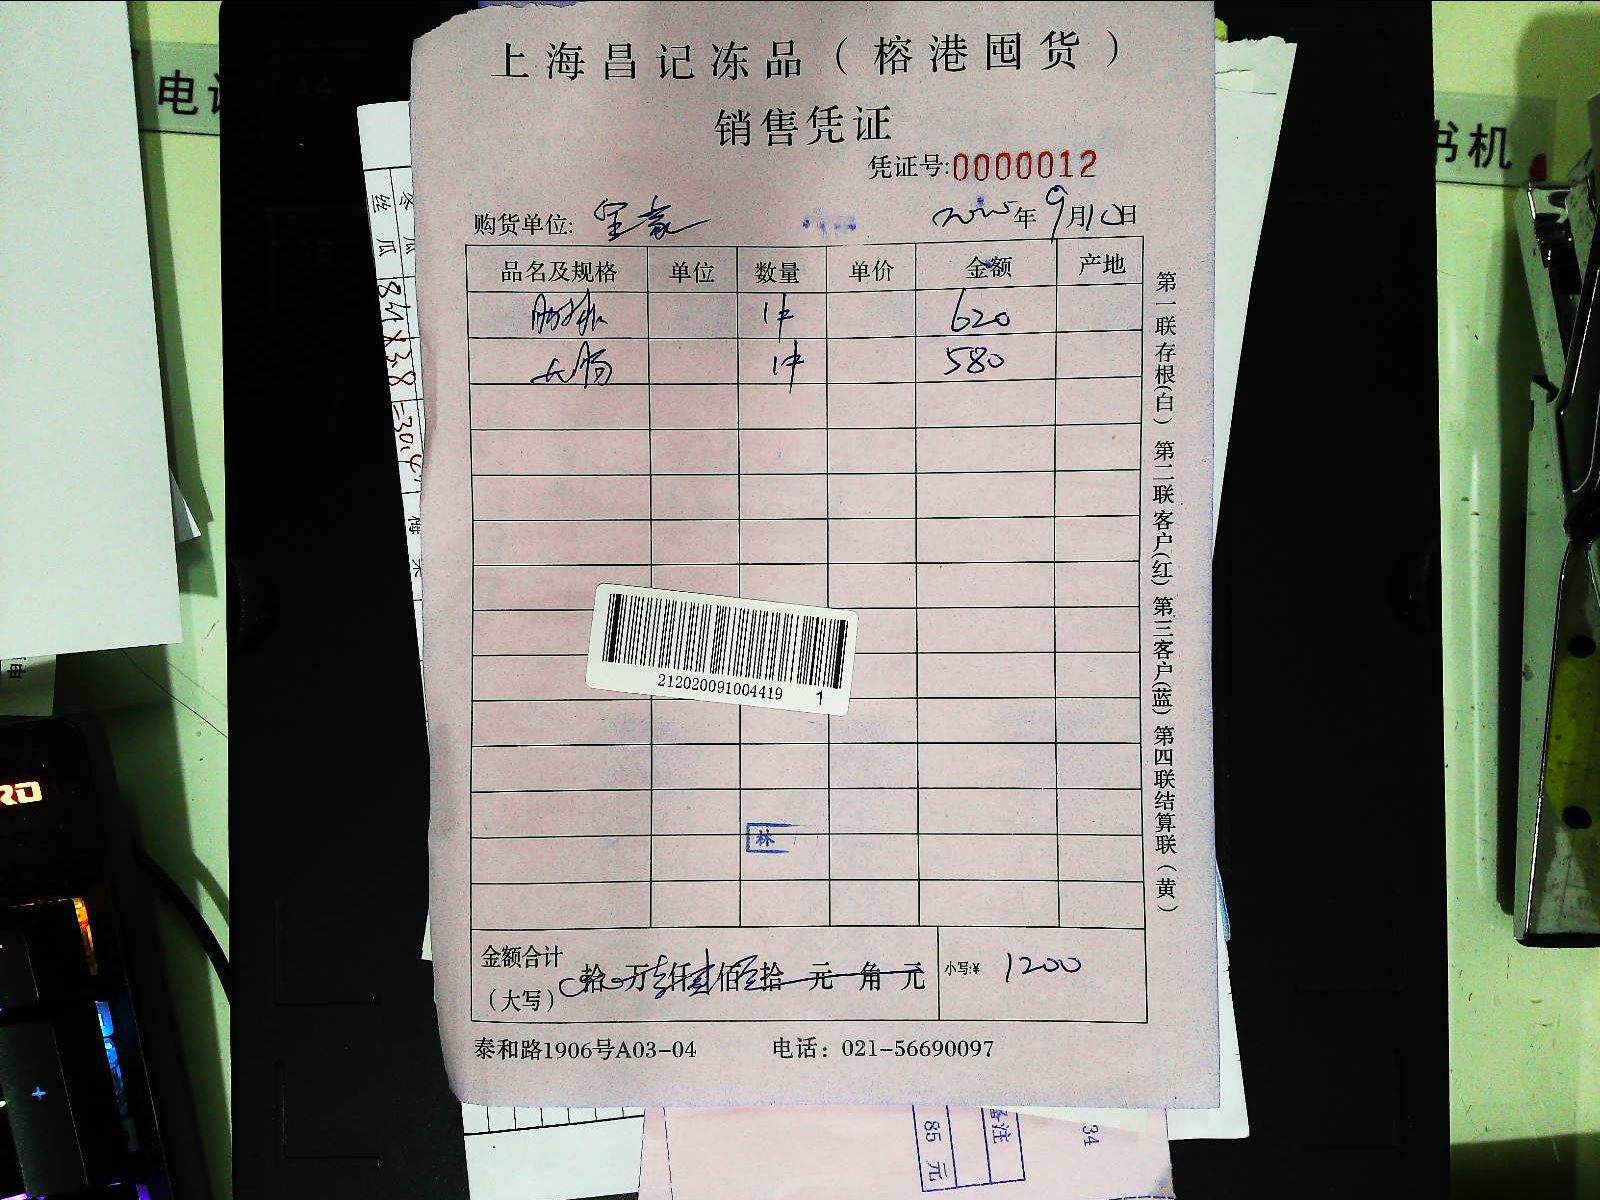 上海昌记冻品（榕港囤货）
销售凭证
凭证号:0000012
购货单位:
年9月10日
品名及规格 单位 数量 单价 金额 产地
1件 620
大肠 1件 580
212020091004419 1
林
金额合计（大写） 拾 万壹仟贰佰 拾 元 角 元 小写:¥ 1200
泰和路1906号A03-04 电话：021-56690097
第一联存根(白) 第二联客户(红) 第三客户(蓝) 第四联结算联（黄）
电
书机
丝瓜
84×3.8=30.4
RD
85 元
备注
34